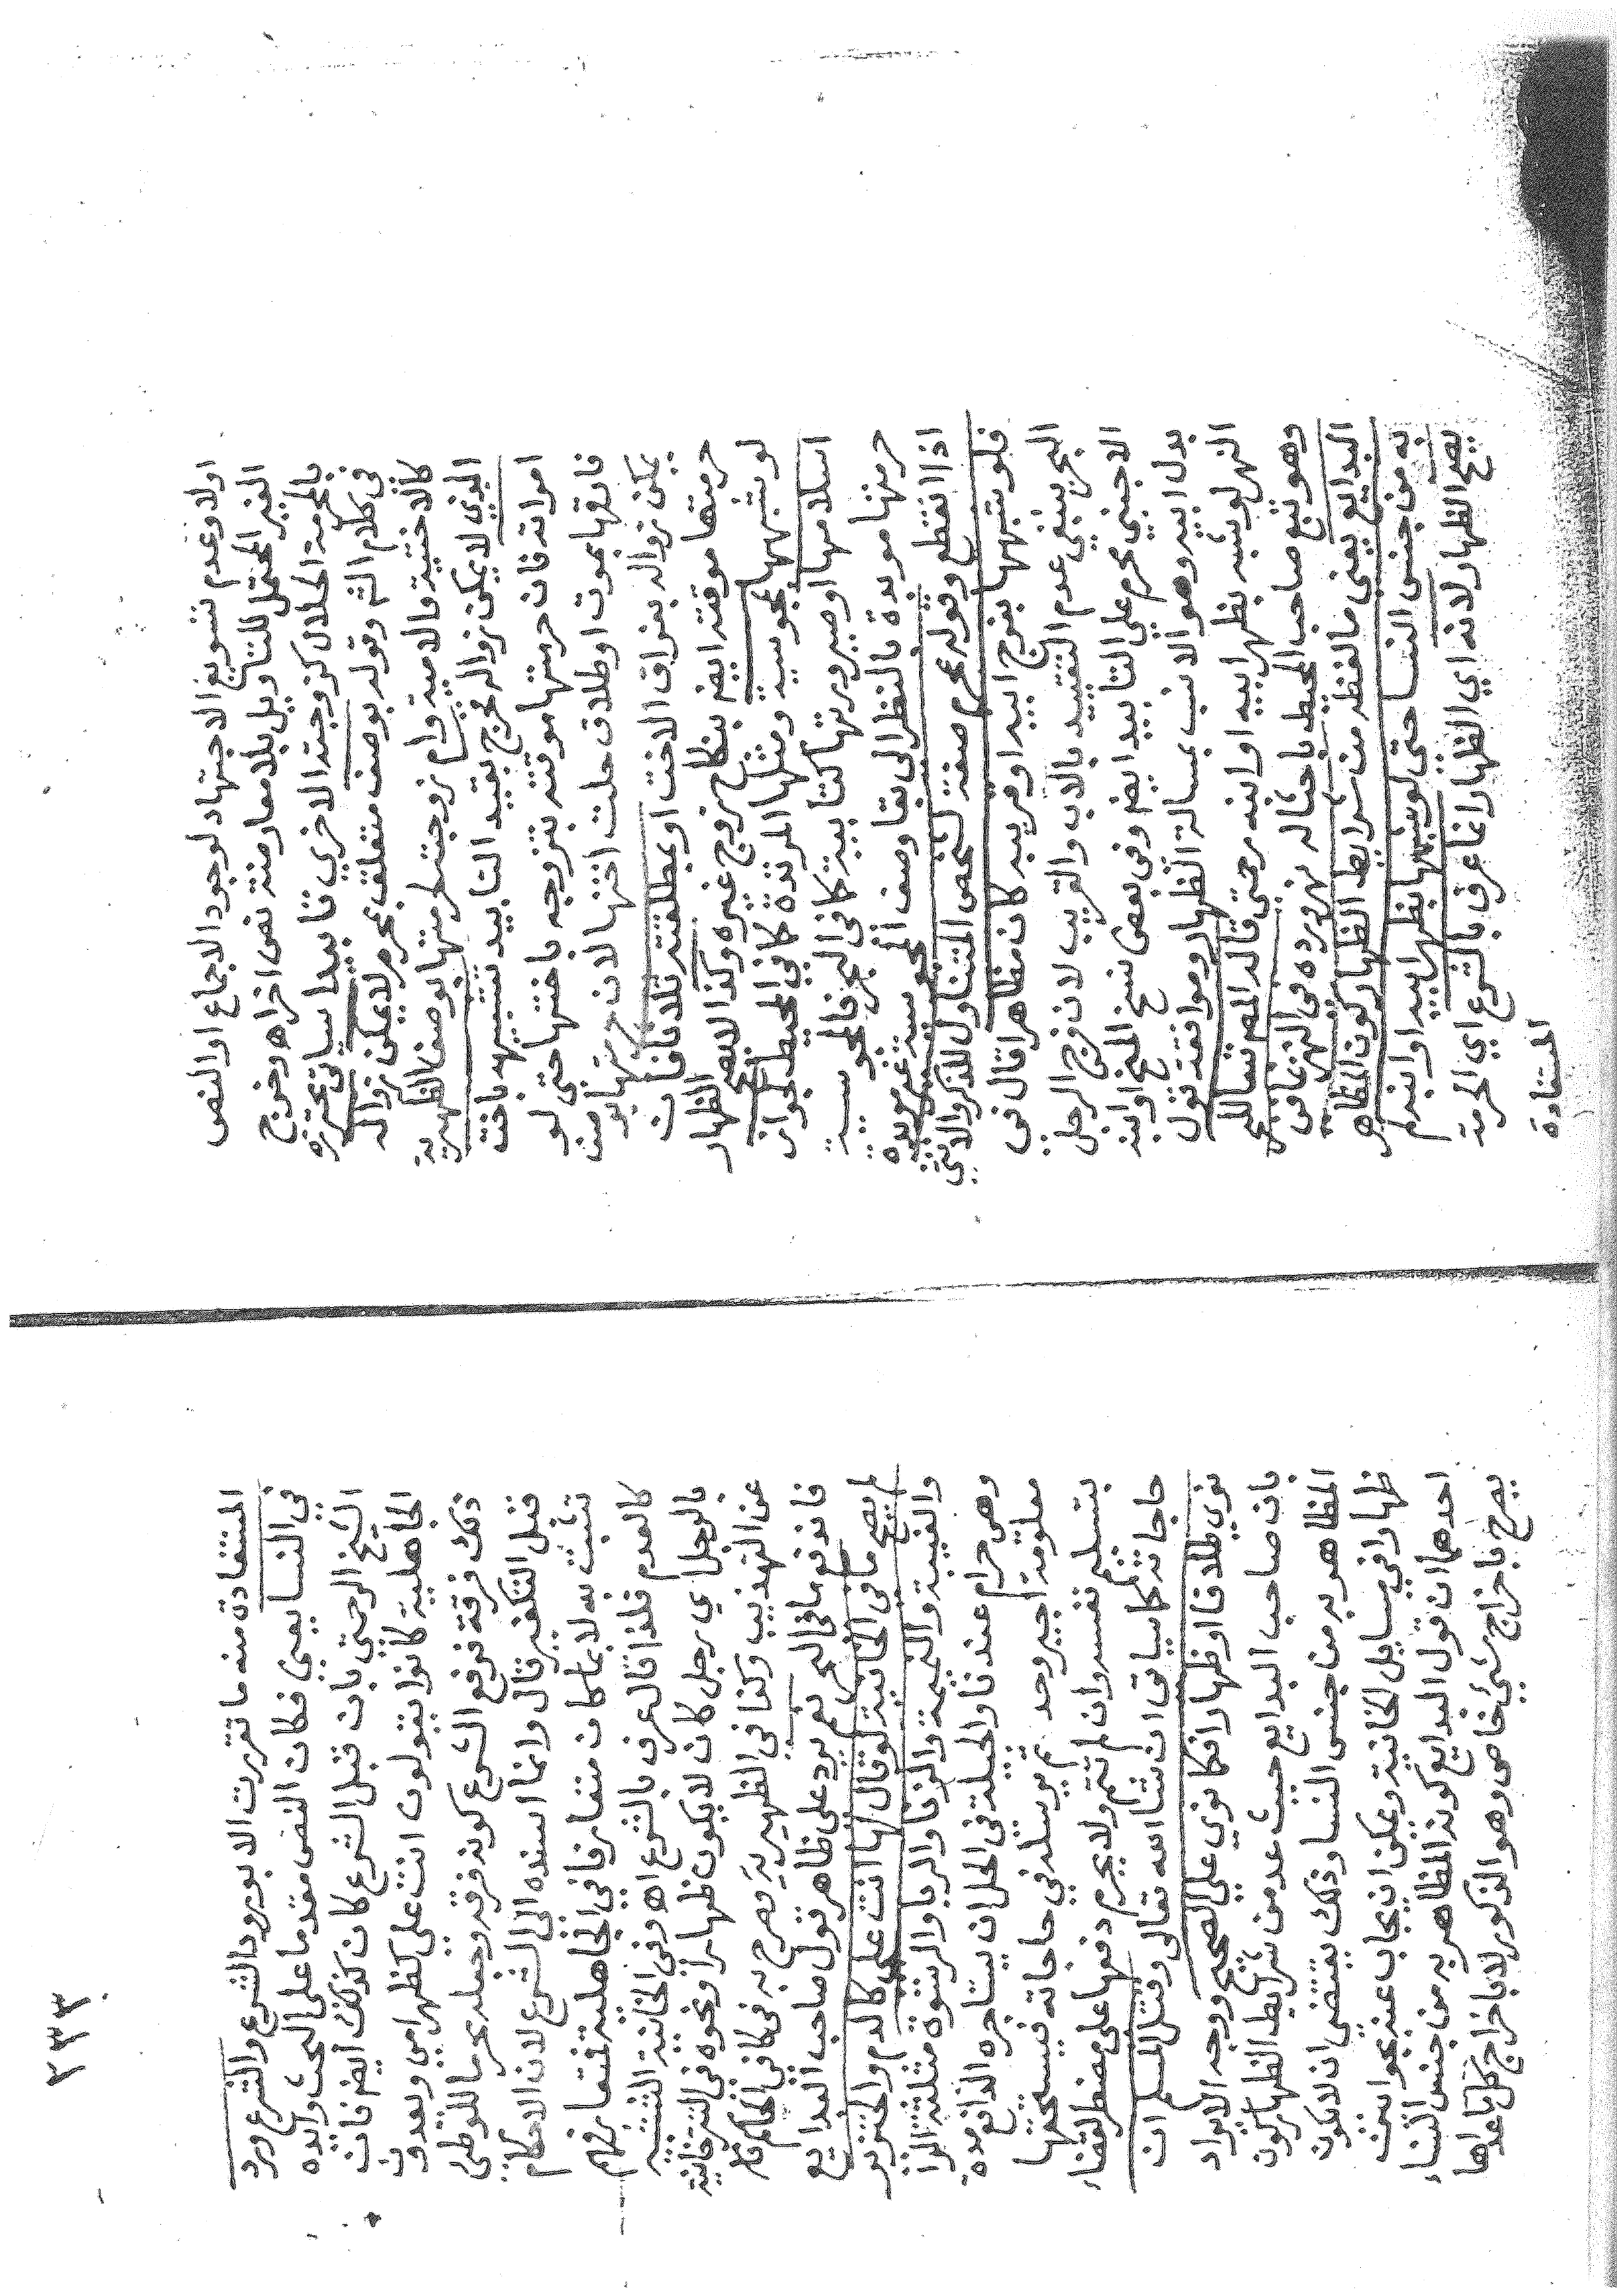 اولا وعدم تسويغ الاجتهاد لوجود الاجماع او النص
الغير المحتمل للتاويل بلا معارضة نص اخر اه وخرج
بالحرمة الحلال كزوجته الاخري تابيدا سياتي محترزه
في كلام الشم وقوله بوصف متعلق بمحرم لا يمكن زواله
كالاختية والامية وام زوجته لحرمتها بوصف الظهرية
الذي لا يمكن زواله فخرج بقيد التابيد تشبيهه باخت
امراته فان حرمتها موقتة بتزوجه باختها حتى لو
فارقها بموت او طلاق حلت اختها لان حرمتها بوصف
يمكن زواله بفراق الاخت او بمطلقته ثلاثا فان
حرمتها موقتة ايضا بنكاح زوج غيره وكذا لا يصح الظهار
لو شبهها بمجوسية ومثلها المرتدة كما في المحيط لجواز
اسلامها او صيرورتها كتابية كما في البحر فالمجوسية
حرمتها موبدة بالنظر الى بقا وصف المجوسية غير موبدة
اذا انقطع وقوله بمحرم صفة لشخص المتناول للذكر والانثى
فلو شبهها بفرج ابيه او قريبه كان مظاهرا قال في
البحر ينبغي عدم التقييد بالاب والقريب لان فرج الرجل
الاجنبي محرم علي التابيد ايضا وفي بعض نسخ المنح او ابنه
بدل ابيه وهو الانسب بمسالة الظهار وموافقته تول
النهر لو شبه بظهر ابيه او ابنه رحمتي قاله المصـ تبعا للبحر
وهو تبع صاحب المحيط باحثا له نهر ورده في النهر بما في
البدايع يعني ما لفظه من شرايط الظهار كون المظاهر
به من جنس النسا حتى لو شبهها بظهر ابيه او ابنه لم
يصح الظهار لانه اي الظهار انما عرف بالشرع اي الحرمة
المستفادة
٢٣٣
المستفادة منه ما تقررت الا بورود الشرع والشرع ورد
في النسا يعني فكان النص مقدما على البحث وايده
الشيخ الرحمتي بان قبل الشرع كان كذلك ايضا فان
الجاهلية كانوا يقولون انت علي كظهر امي ويعدون
ذلك فرقة فرفع الشرع كونه فرقة وجعله محرما للوطئ
قبل التكفير قال وانما اسنده الى الشرع لان الاحكام
تثبت به لا بما كان متعارفا في الجاهلية فتعارفهم
كالعدم فلذا قال عرف بالشرع اه وفي الخانية التشبيه
بالرجل اي رجل كان لا يكون ظهارا ونحوه في التترخانية
عن التهذيب وكذا في الظهيرية صرح به في كافي الحاكم
فاندفع ما في البحر نعم يرد على ظاهر قول صاحب البدايع
لم يصح ما في الخانية لو قال لها انت علي كالدم والخنزير
والغيبة والنميمة والزنا والربا والرشوة مثلثة الرا
وهي حرام عندنا والحيلة في الحل ان يستاجره الدافع مدة
معلومة اجير وحد ثم يرسله في حاجاته فيستحقها
بتسليم نفسه وان لم تتم ولا يحرم دفعها علي مضطر لقضاء
حاجاته كما سياتي ان شا الله تعالى وقتل المسلم ان
نوي طلاقا او ظهارا فكما نوي علي الصحيح ووجه الايراد
بان صاحب البدايع حيث عد من شرايط الظهار كون
المظاهر به من جنس النسا وذلك يقتضي ان لا يكون
ظهارا في مسايل الخانية ويمكن ان يجاب عنه بجوابين
احدهما ان قول البدايع كون المظاهر به من جنس النساء
يصرح باخراج شيئ خاص وهو الذكور لا باخراج كل ما عداها